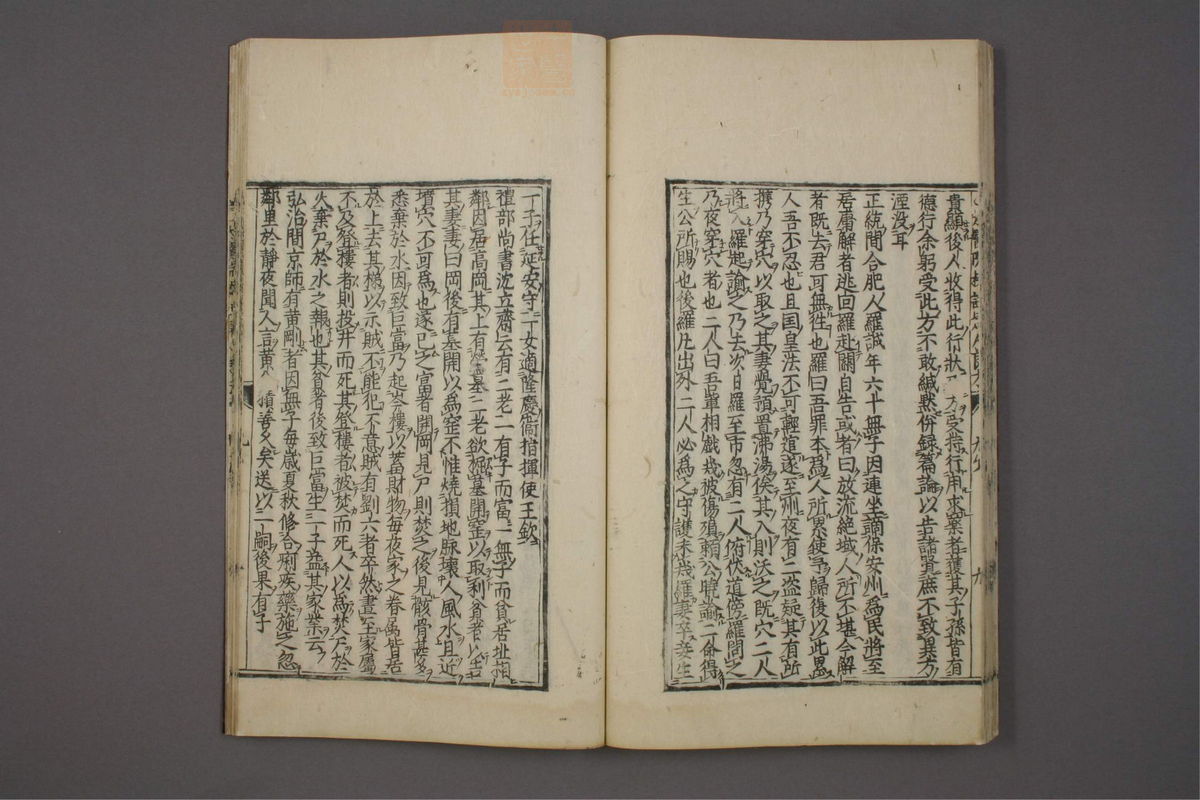 貴顯後人收得此行狀 方受持行用求藥者獲其子孫皆有
德行余躬受此方不敢緘默份録篇論以告諸賢庶不致異方
湮没耳
正統間合肥人羅誠年六十無子因連坐謫保安州爲民將至
居庸解者逃回羅赴關自告或者曰放流絶域人所不堪今解
者既去君可無徃也羅曰吾罪本爲人所累使予歸復以此累
人吾不忍也且国皇法不可輕逭遂至州夜有二盗疑其有所
携乃穿穴以取之其妻覺預置沸湯俟其入則沃之既穴二人
將入羅起諭之乃去次日羅至市忽有二人俯伏道傍羅問之
乃夜穿穴者也二人曰吾軰相戯幾被傷殞頼公曉諭二命得
生公所賜也後羅凡出外二人必爲之守護未幾羅妻卒妾生
丁子任延安守一女適隆慶衞指揮使王欽
禮部尚書沈立齋云有二老一有子而富一無子而貧居址相
鄰因居高岡其上有 墓二老欲 墓開窑以取利貧者以告
其妻妻曰岡後有墓開以爲窑不惟燒損地脉壊人風水且近
墳穴不可爲也遂已之富者開岡見尸則焚之後見骸骨甚多
悉棄於水因致巨富乃起岑樓以蓄財物毎夜家之眷属皆居
於上去其梯以示賊不能犯不意賊有劉六者卒然晝至家屬
不及登樓者則投井而死其登樓者被焚而死人以爲焚尸於
火棄尸於水之報也其貧者後致巨富生二子益其家業云
弘治間京師有黄剛者因無子毎歳夏秋修合痢疾藥施之忽
鄰里於靜夜聞人言黄 積善久矣送以二嗣後果有子